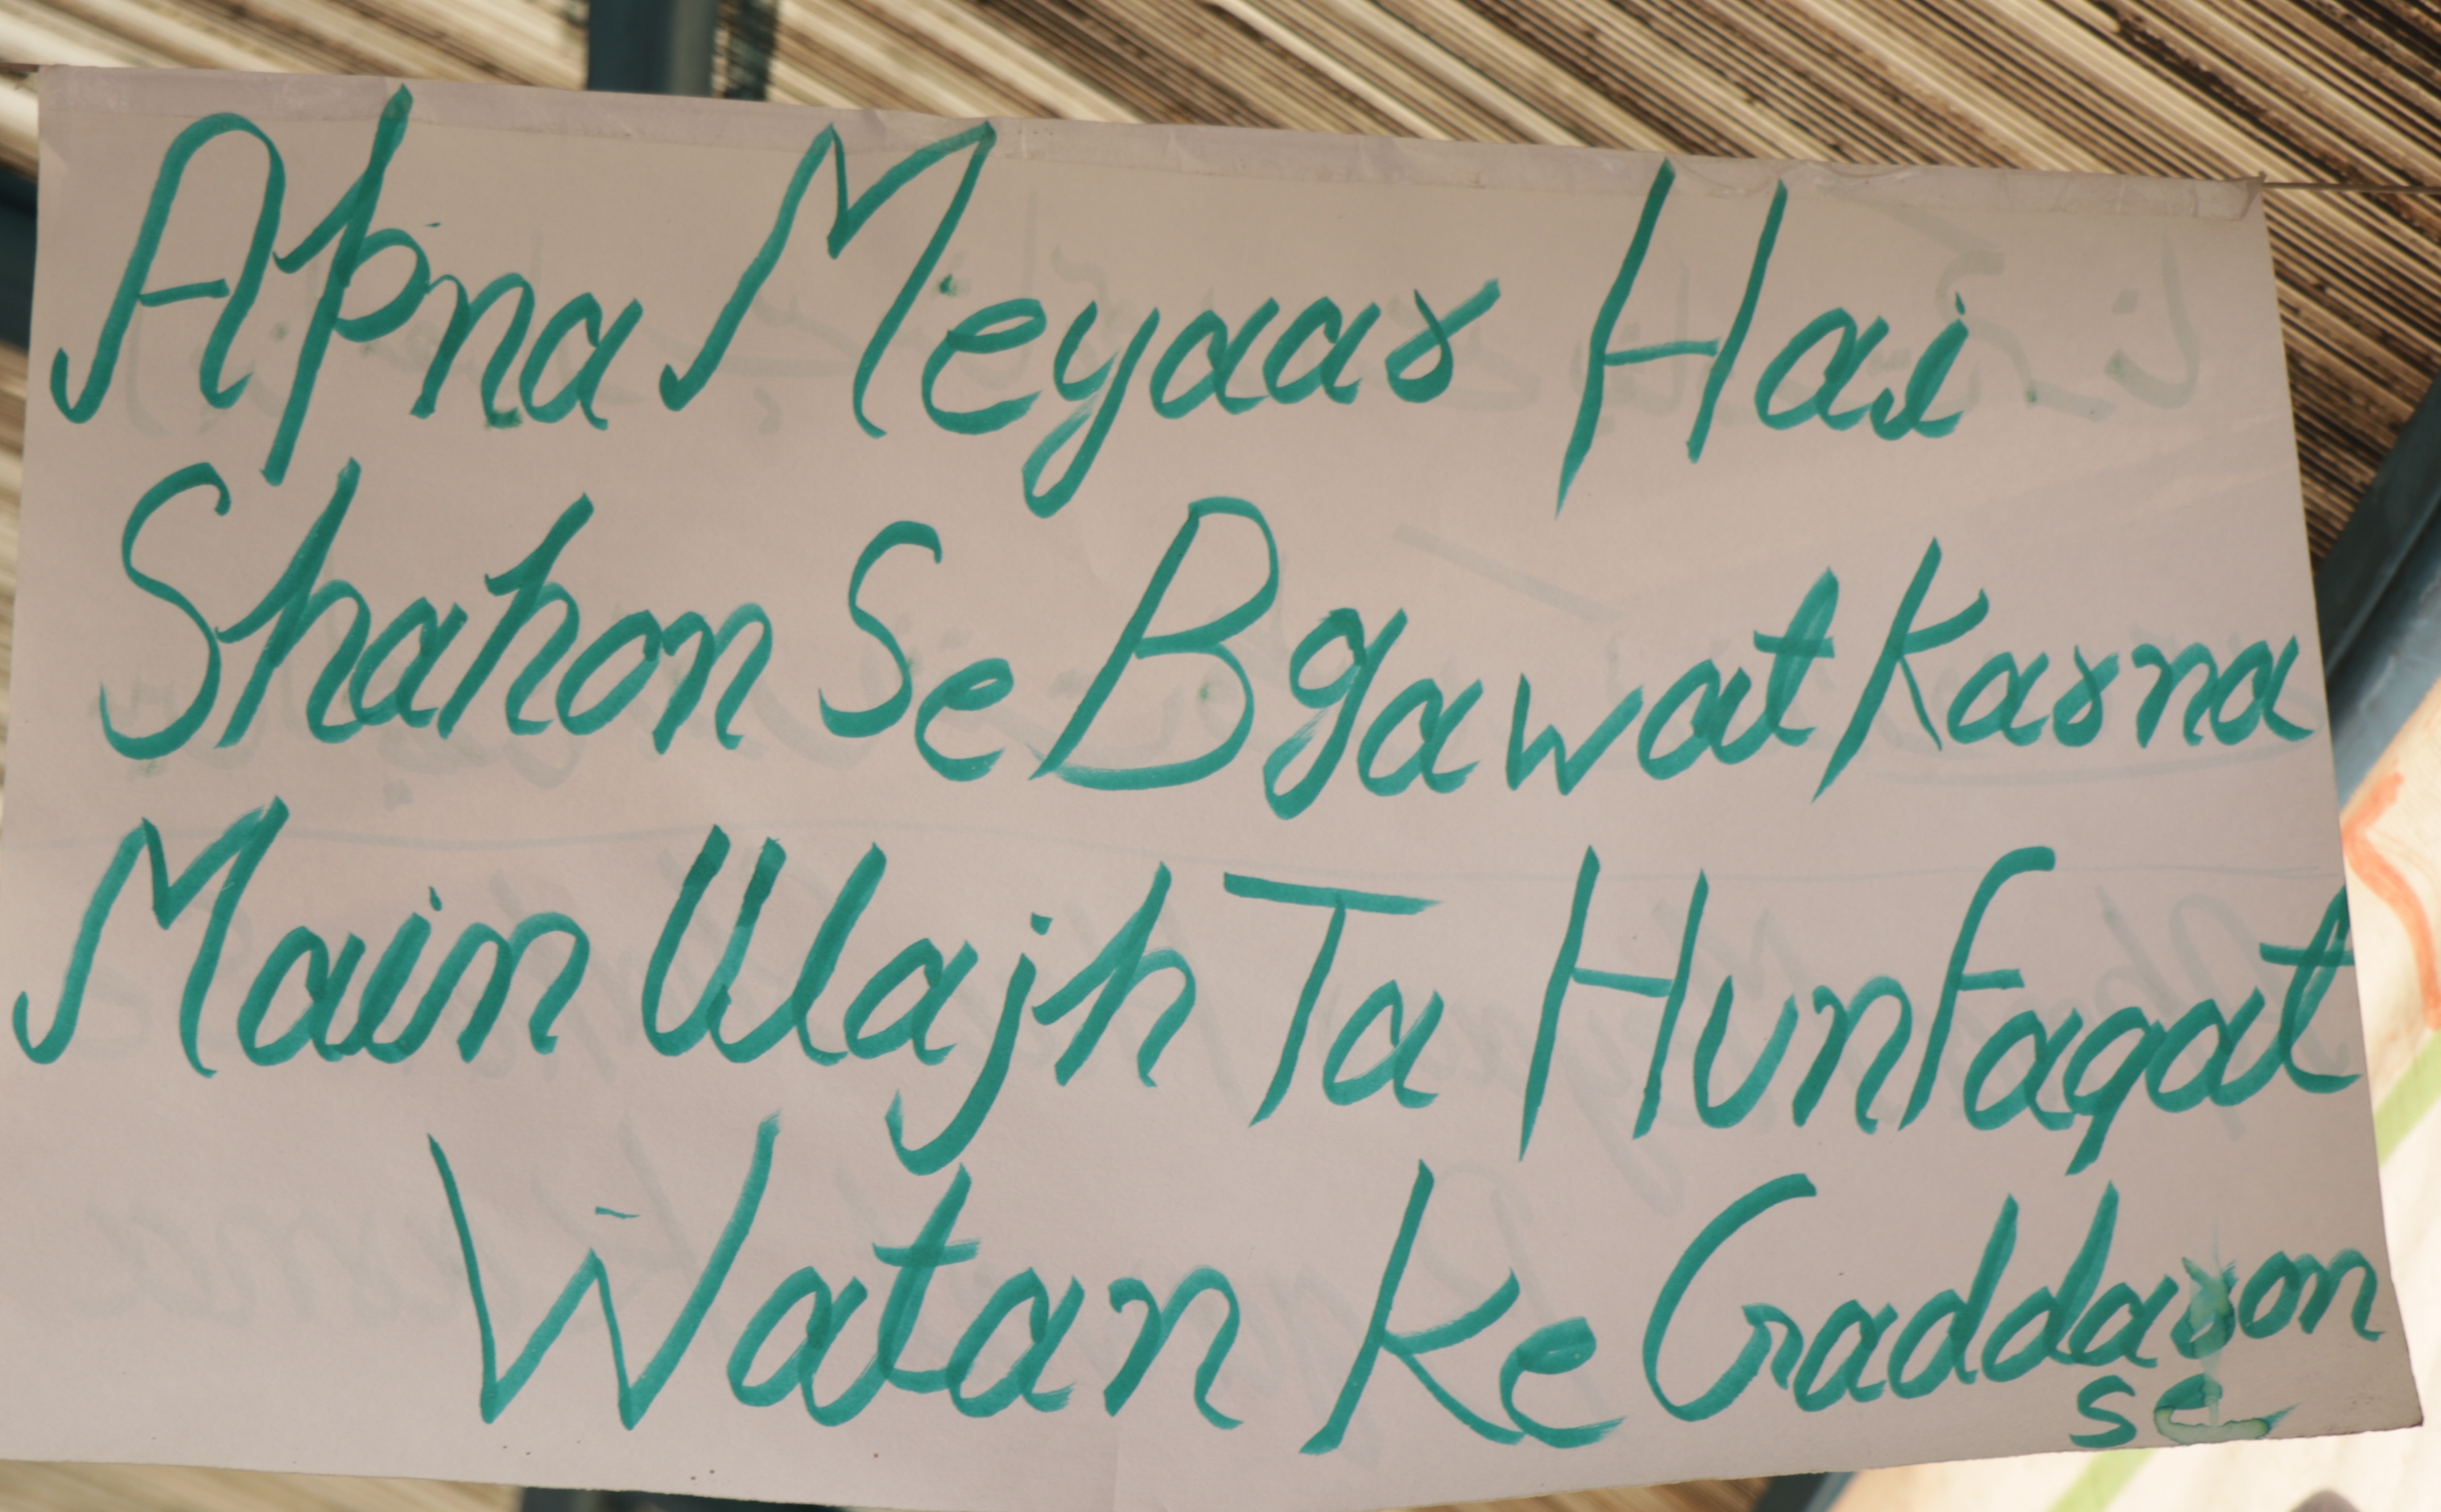 Apna Meyaar Hai
Shahon Se Bgawat Karna
Main Ulajh Ta Hun Faqat
Watan Ke Graddaron
se